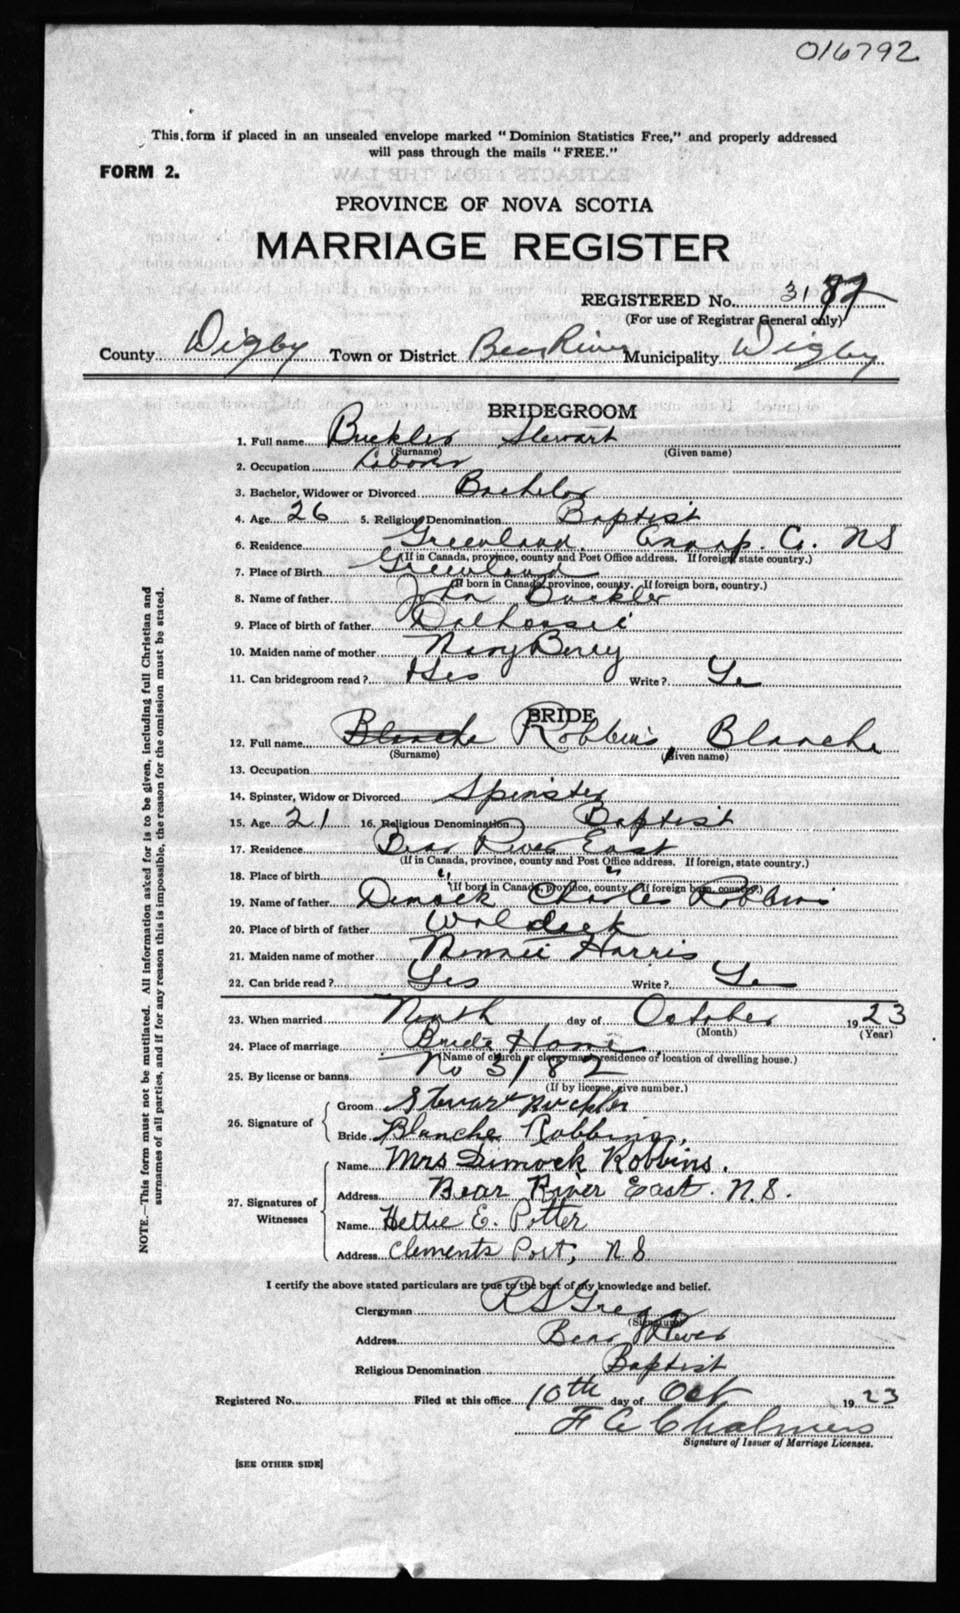 016792
This form if placed in an unsealed envelope marked "Dominion Statistics Free," and properly addressed
will pass through the mails "FREE."
FORM 2.
PROVINCE OF NOVA SCOTIA
MARRIAGE REGISTER
REGISTERED No. 3182
(For use of Registrar General only)
County Digby Town or District Bear River Municipality Digby
BRIDEGROOM
1. Full name Buckler Stewart
(Surname) (Given name)
2. Occupation Laborer
3. Bachelor, Widower or Divorced Bachelor
4. Age 26 5. Religious Denomination Baptist
6. Residence Greenland, Annap. Co. NS
(If in Canada, province, county and Post Office address. If foreign, state country.)
7. Place of Birth Greenland
(If born in Canada, province, county. If foreign born, country.)
8. Name of father John Buckler
9. Place of birth of father Dalhousie
10. Maiden name of mother Mary Berry
11. Can bridegroom read? Yes Write? Ye
BRIDE
12. Full name Blanche Robbins, Blanche
(Surname) (Given name)
13. Occupation
14. Spinster, Widow or Divorced Spinster
15. Age 21 16. Religious Denomination Baptist
17. Residence Bear River East
(If in Canada, province, county and Post Office address. If foreign, state country.)
18. Place of birth " "
(If born in Canada, province, county. If foreign born, country.)
19. Name of father Dimock Charles Robbins
20. Place of birth of father Waldeck
21. Maiden name of mother Minnie Harris
22. Can bride read? Yes Write? Ye
23. When married Ninth day of October 1923
(Month) (Year)
24. Place of marriage Brides Home
(Name of church or clergyman's residence or location of dwelling house.)
25. By license or banns No 3182
(If by license, give number.)
26. Signature of Groom Stewart Buckler
Bride Blanche Robbins,
27. Signatures of Witnesses Name Mrs Dimock Robbins.
Address Bear River East. N.S.
Name Hettie E. Potter
Address Clements Port, N.S
I certify the above stated particulars are true to the best of my knowledge and belief.
Clergyman R S Gregg
(Signature)
Address Bear River
Religious Denomination Baptist
Registered No. Filed at this office 10th day of Oct 1923
F C Chalmers
Signature of Issuer of Marriage Licenses.
[SEE OTHER SIDE]
NOTE.—This form must not be mutilated. All information asked for is to be given, including full Christian and
surnames of all parties, and if for any reason this is impossible, the reason for the omission must be stated.